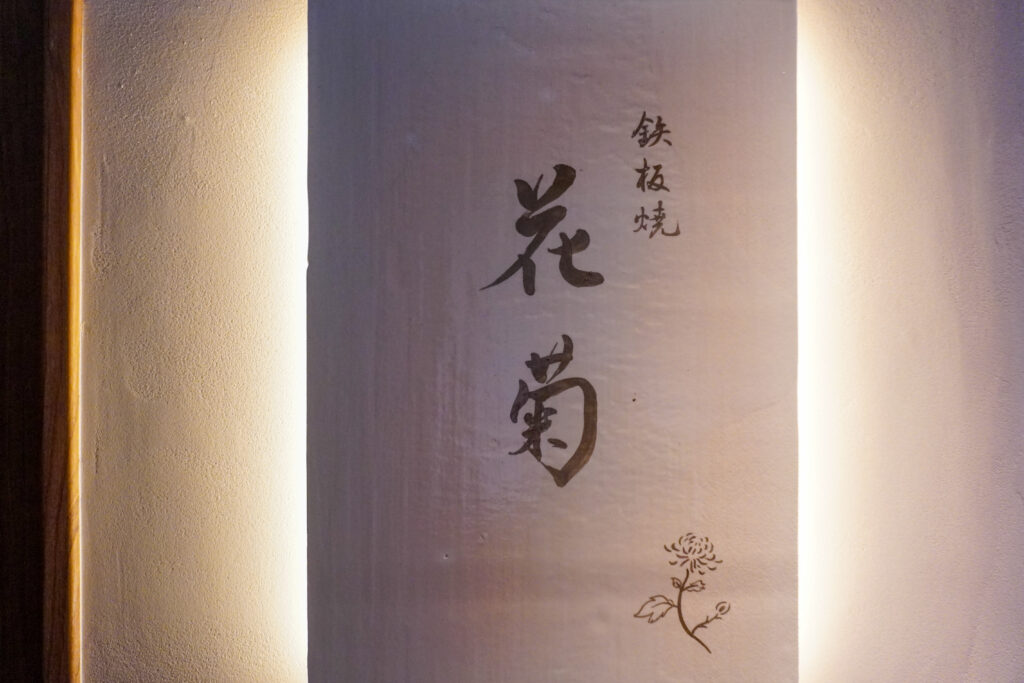 鉄板焼
花菊